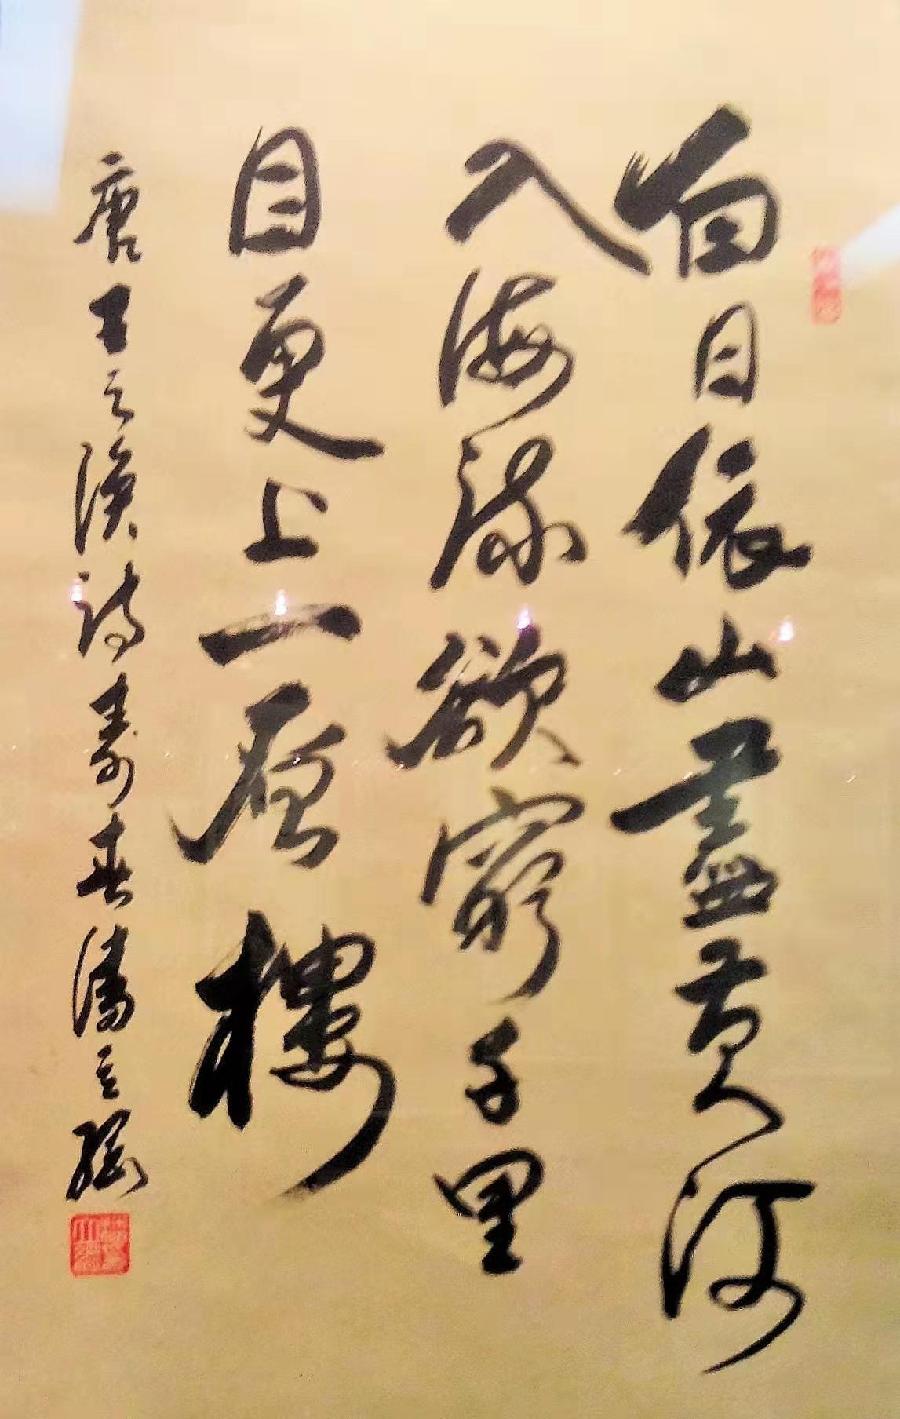 白日依山盡黃河
入海流欲窮千里
目更上一層樓
唐王之渙詩壽春潘立綱